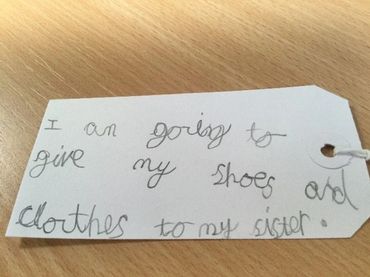 I an going to
give my shoes and
clorthes to my sister.